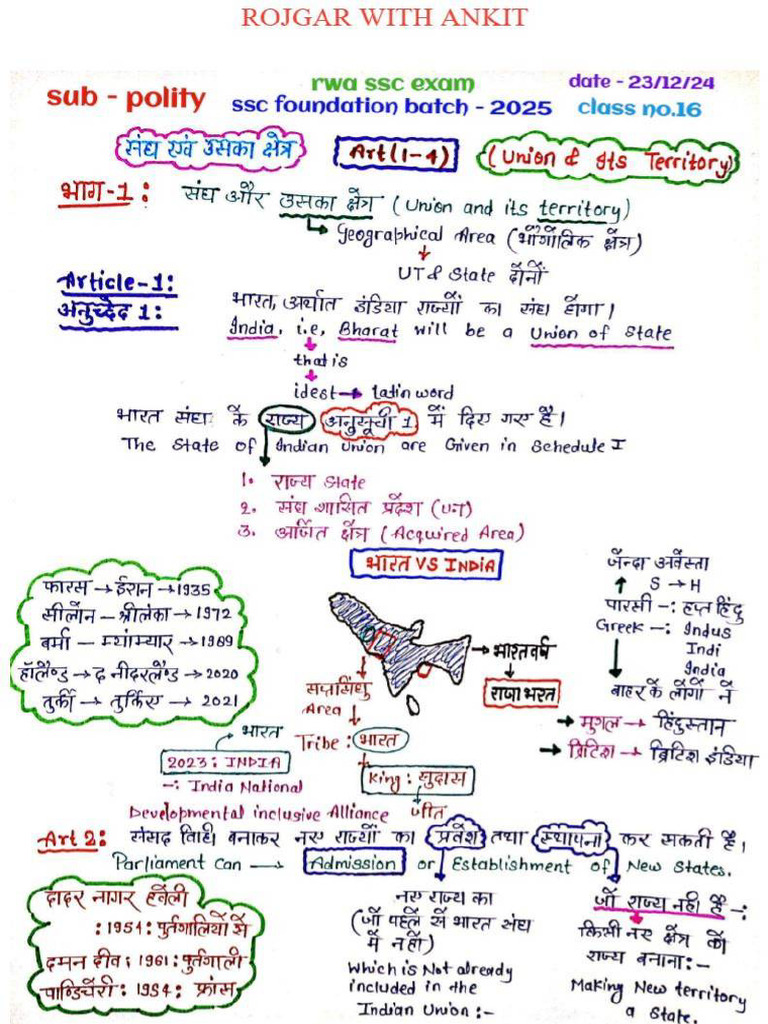 ROJGAR WITH ANKIT
rwa ssc exam
date - 23/12/24
sub - polity
ssc foundation batch - 2025
class no.16
संघ एवं उसका क्षेत्र
Art(1-4)
(Union & Its Territory)
भाग-1:
संघ और उसका क्षेत्र (Union and its territory)
Geographical Area (भौगोलिक क्षेत्र)
UT & State दोनों
Article-1:
अनुच्छेद 1:
भारत, अर्थात इंडिया राज्यों का संघ होगा।
India, i.e, Bharat will be a Union of State
that is
idest → Latin word
भारत संघ के राज्य अनुसूची 1 में दिए गए है।
The State of Indian Union are Given in Schedule I
1. राज्य State
2. संघ शासित प्रदेश (UT)
3. अर्जित क्षेत्र (Acquired Area)
भारत VS INDIA
फारस → ईरान → 1935
सीलोन – श्रीलंका → 1972
बर्मा – म्यांम्यार → 1989
हॉलैण्ड → द नीदरलैण्ड → 2020
तुर्की → तुर्किए → 2021
→ भारतवर्ष
राजा भरत
सप्तसिंधु
Area
Tribe: भारत
King: सुदास
जीत
भारत
2023: INDIA
-: India National
Developmental inclusive Alliance
जेन्दा अवेस्ता
S → H
पारसी -: हप्त हिंदु
Greek -: Indus
Indi
India
बाहर के लोगों ने
→ मुगल → हिंदुस्तान
→ ब्रिटिश → ब्रिटिश इंडिया
Art 2: संसद विधि बनाकर नए राज्यों का प्रवेश तथा स्थापना कर सकती है।
Parliament Can → Admission or Establishment of New States.
दादर नागर हवेली
: 1954: पुर्तगालियों से
दमन दीव: 1961: पुर्तगाली
पाण्डिचेरी: 1954: फ्रांस
नए राज्य का
(जो पहले से भारत संघ
में नहीं)
Which is Not already
included in the
Indian Union :-
जो राज्य नहीं है -:
किसी नए क्षेत्र को
राज्य बनाना:-
Making New territory
a State.